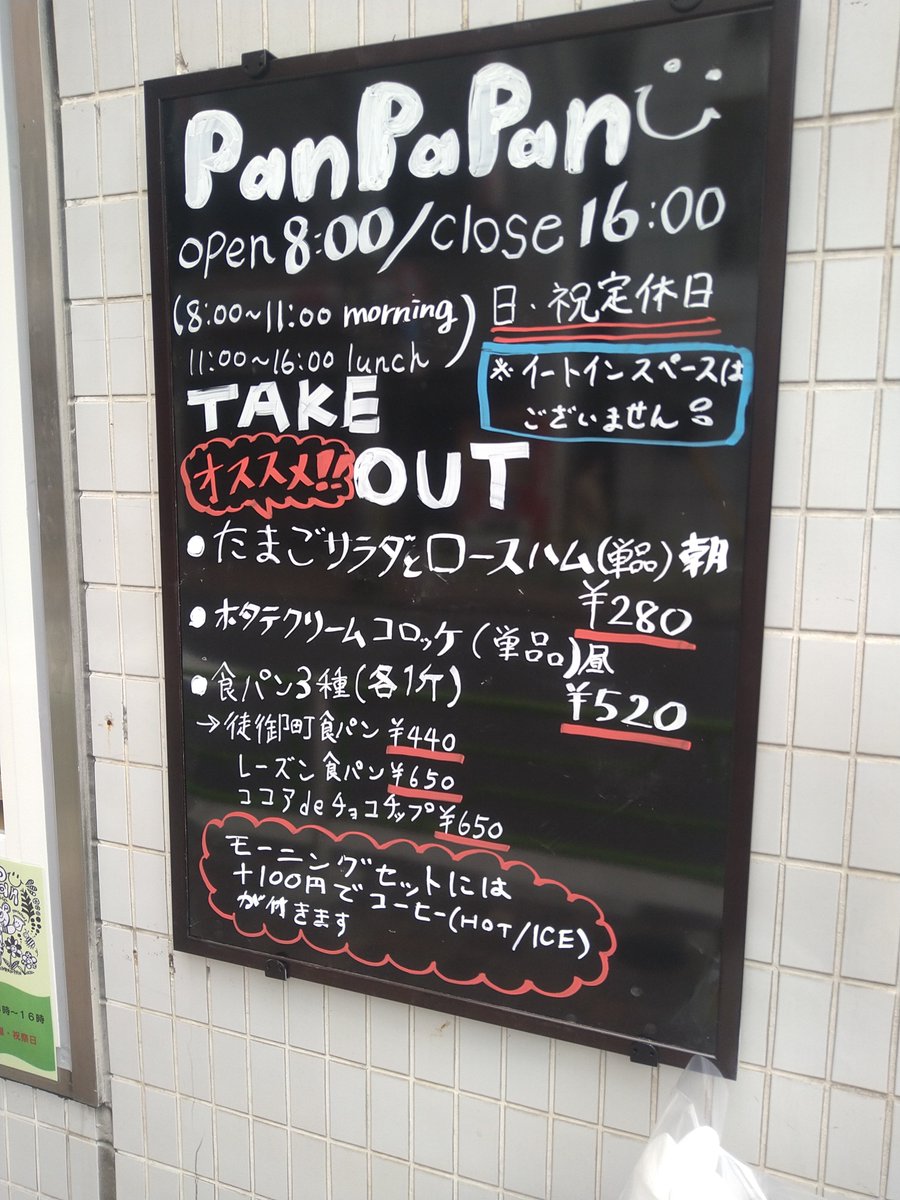 PanPaPan
open 8:00/close 16:00
(8:00~11:00 morning
11:00~16:00 lunch)
日・祝定休日
※イートインスペースは
ございません
TAKE
OUT
オススメ!!
•たまごサラダとロースハム(単品)朝
¥280
•ホタテクリームコロッケ(単品)昼
¥520
•食パン3種(各1斤)
→徒御町食パン ¥440
レーズン食パン ¥650
ココアdeチョコチップ ¥650
モーニングセットには
+100円でコーヒー(HOT/ICE)
が付きます
時~16時
・祝祭日